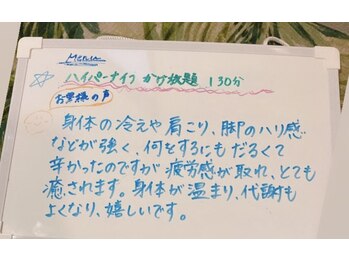 MENU
☆ ハイパーナイフ かけ放題 130分
お客様の声
身体の冷えや肩こり、脚のハリ感
などが強く、何をするにもだるくて
辛かったのですが疲労感が取れ、とても
癒されます。身体が温まり、代謝も
よくなり、嬉しいです。